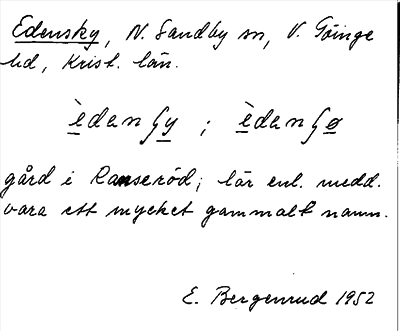 Edensky, N. Sandby sn, V. Göinge
hd, Krist. län.
èdanʃy ; èdanʃø
gård i Ranseröd; lär enl. medd.
vara ett mycket gammalt namn.
E. Bergenrud 1952